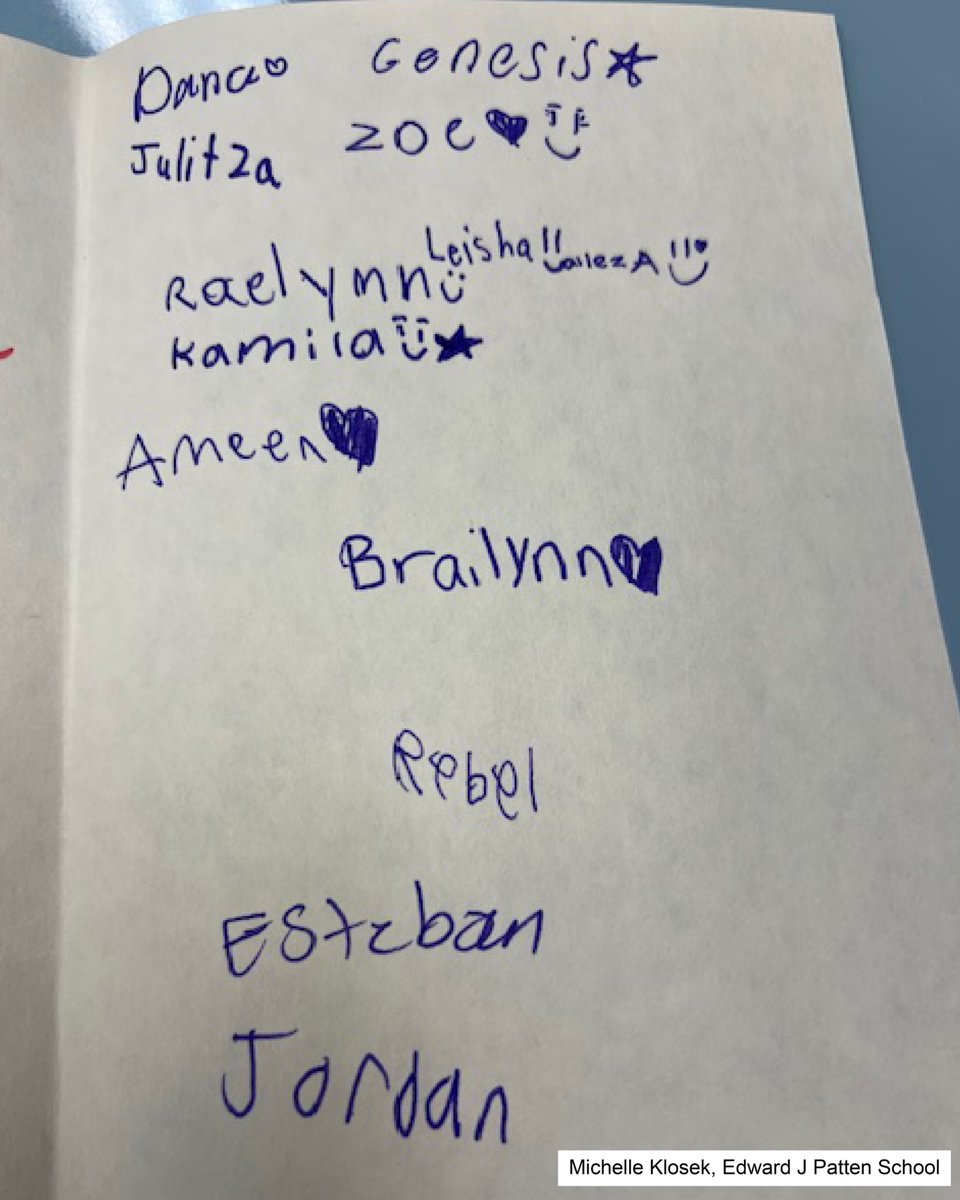 Dana Genesis
Julitza Zoe
Raelynn Leisha
Kamila
Ameen
Brailynn
Rebel
Esteban
Jordan
Michelle Klosek, Edward J Patten School